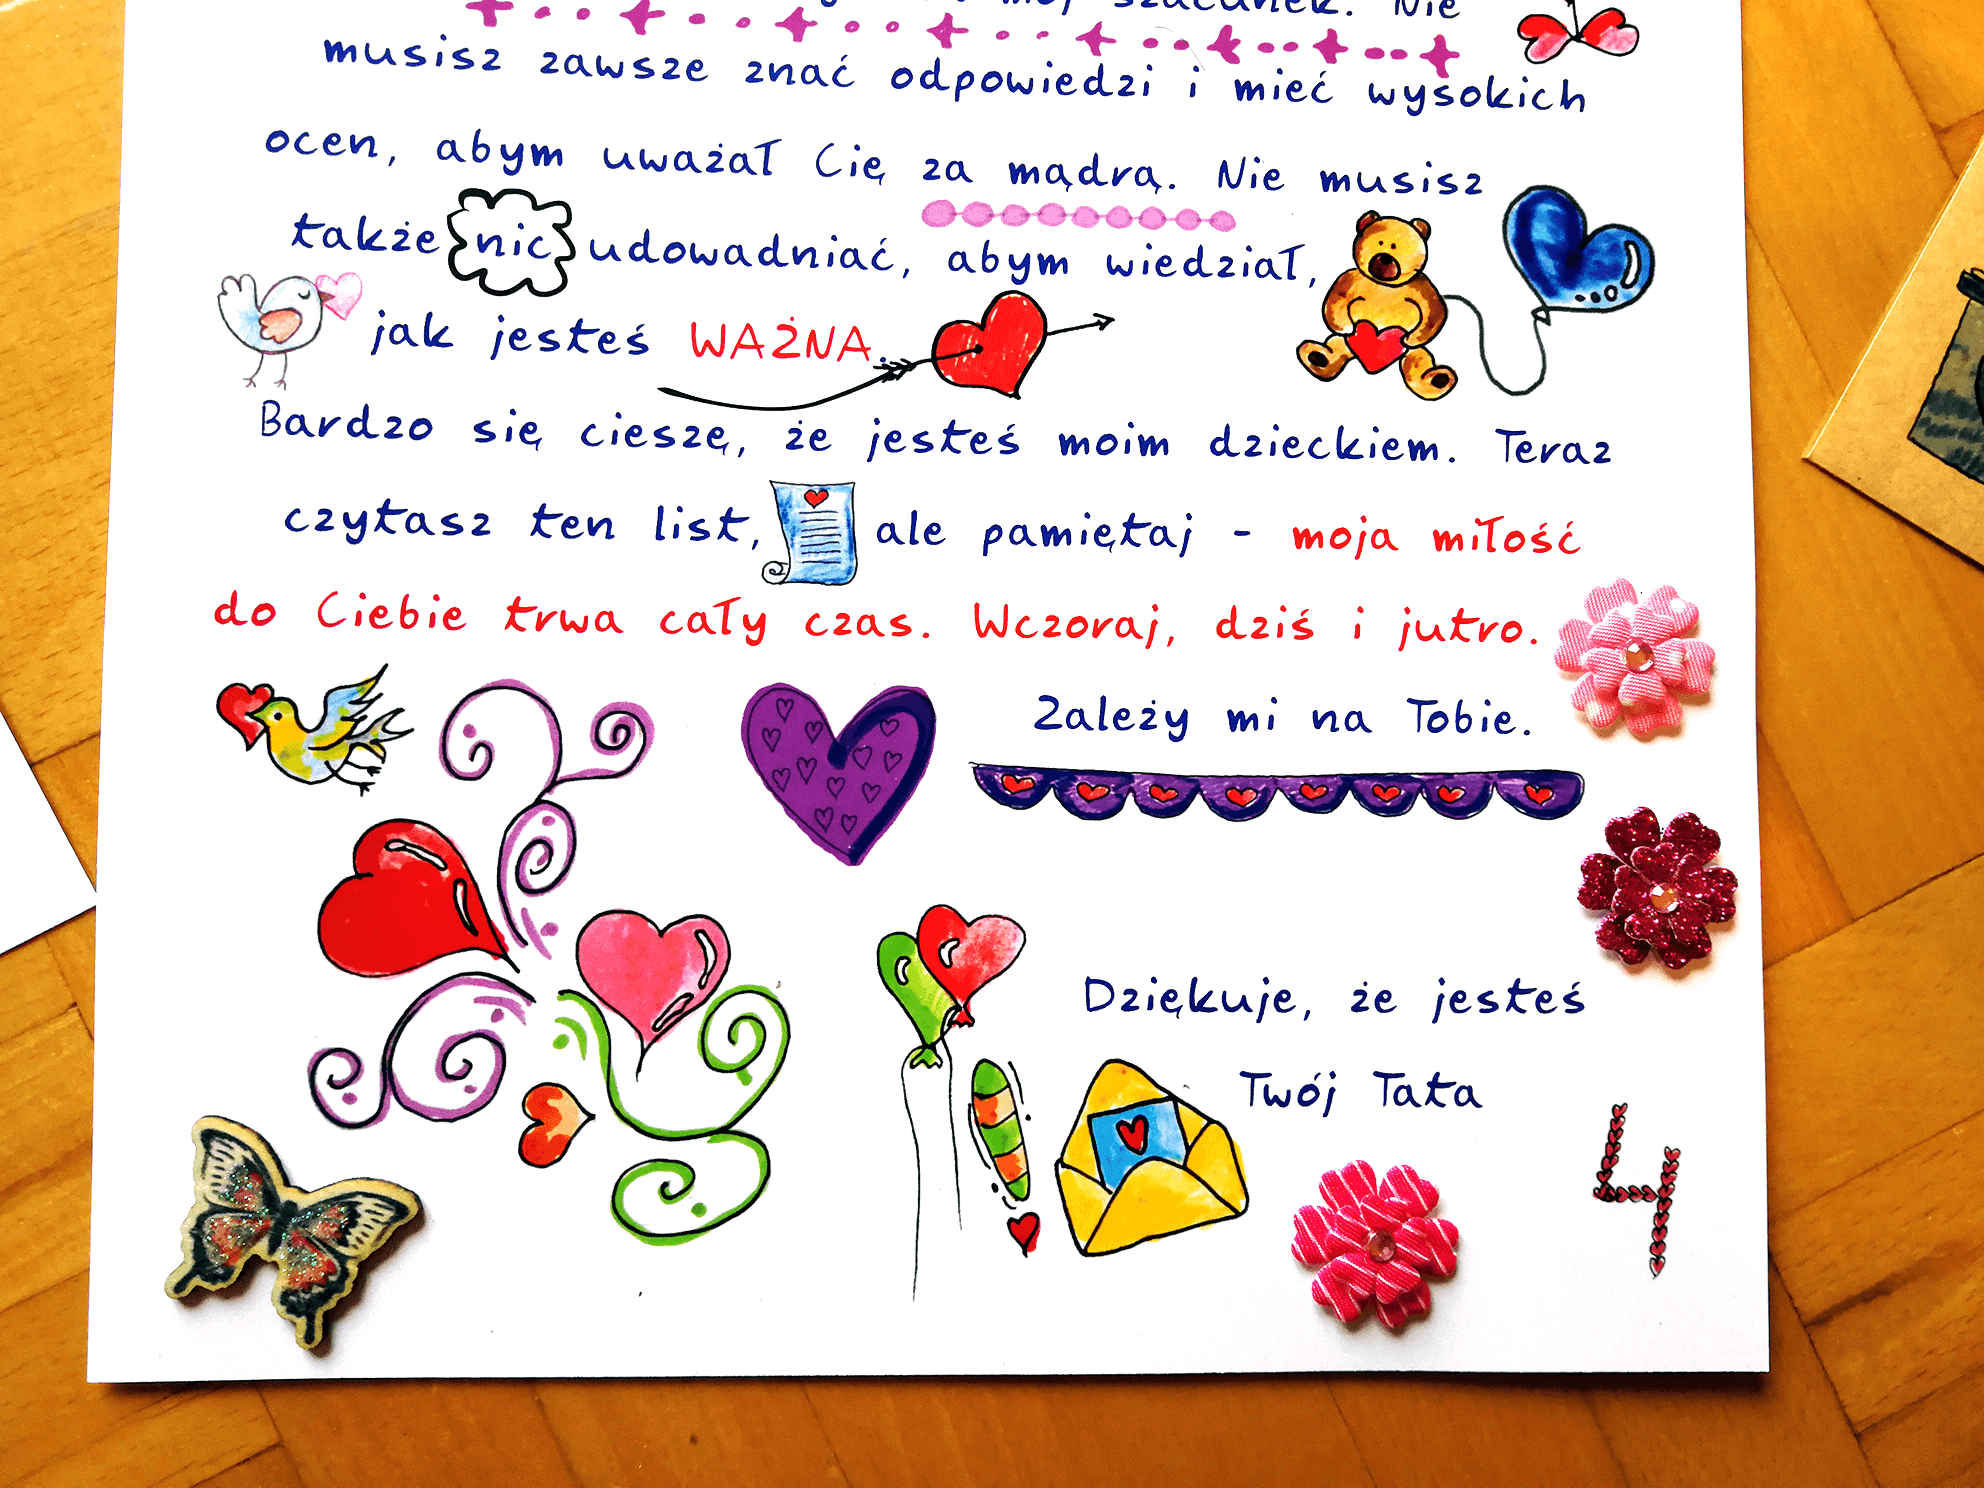 mój szacunek. Nie
musisz zawsze znać odpowiedzi i mieć wysokich
ocen, abym uważał Cię za mądrą. Nie musisz
także nic udowadniać, abym wiedział,
jak jesteś WAŻNA.
Bardzo się cieszę, że jesteś moim dzieckiem. Teraz
czytasz ten list, ale pamiętaj - moja miłość
do Ciebie trwa cały czas. Wczoraj, dziś i jutro.
Zależy mi na Tobie.
Dziękuje, że jesteś
Twój Tata
4